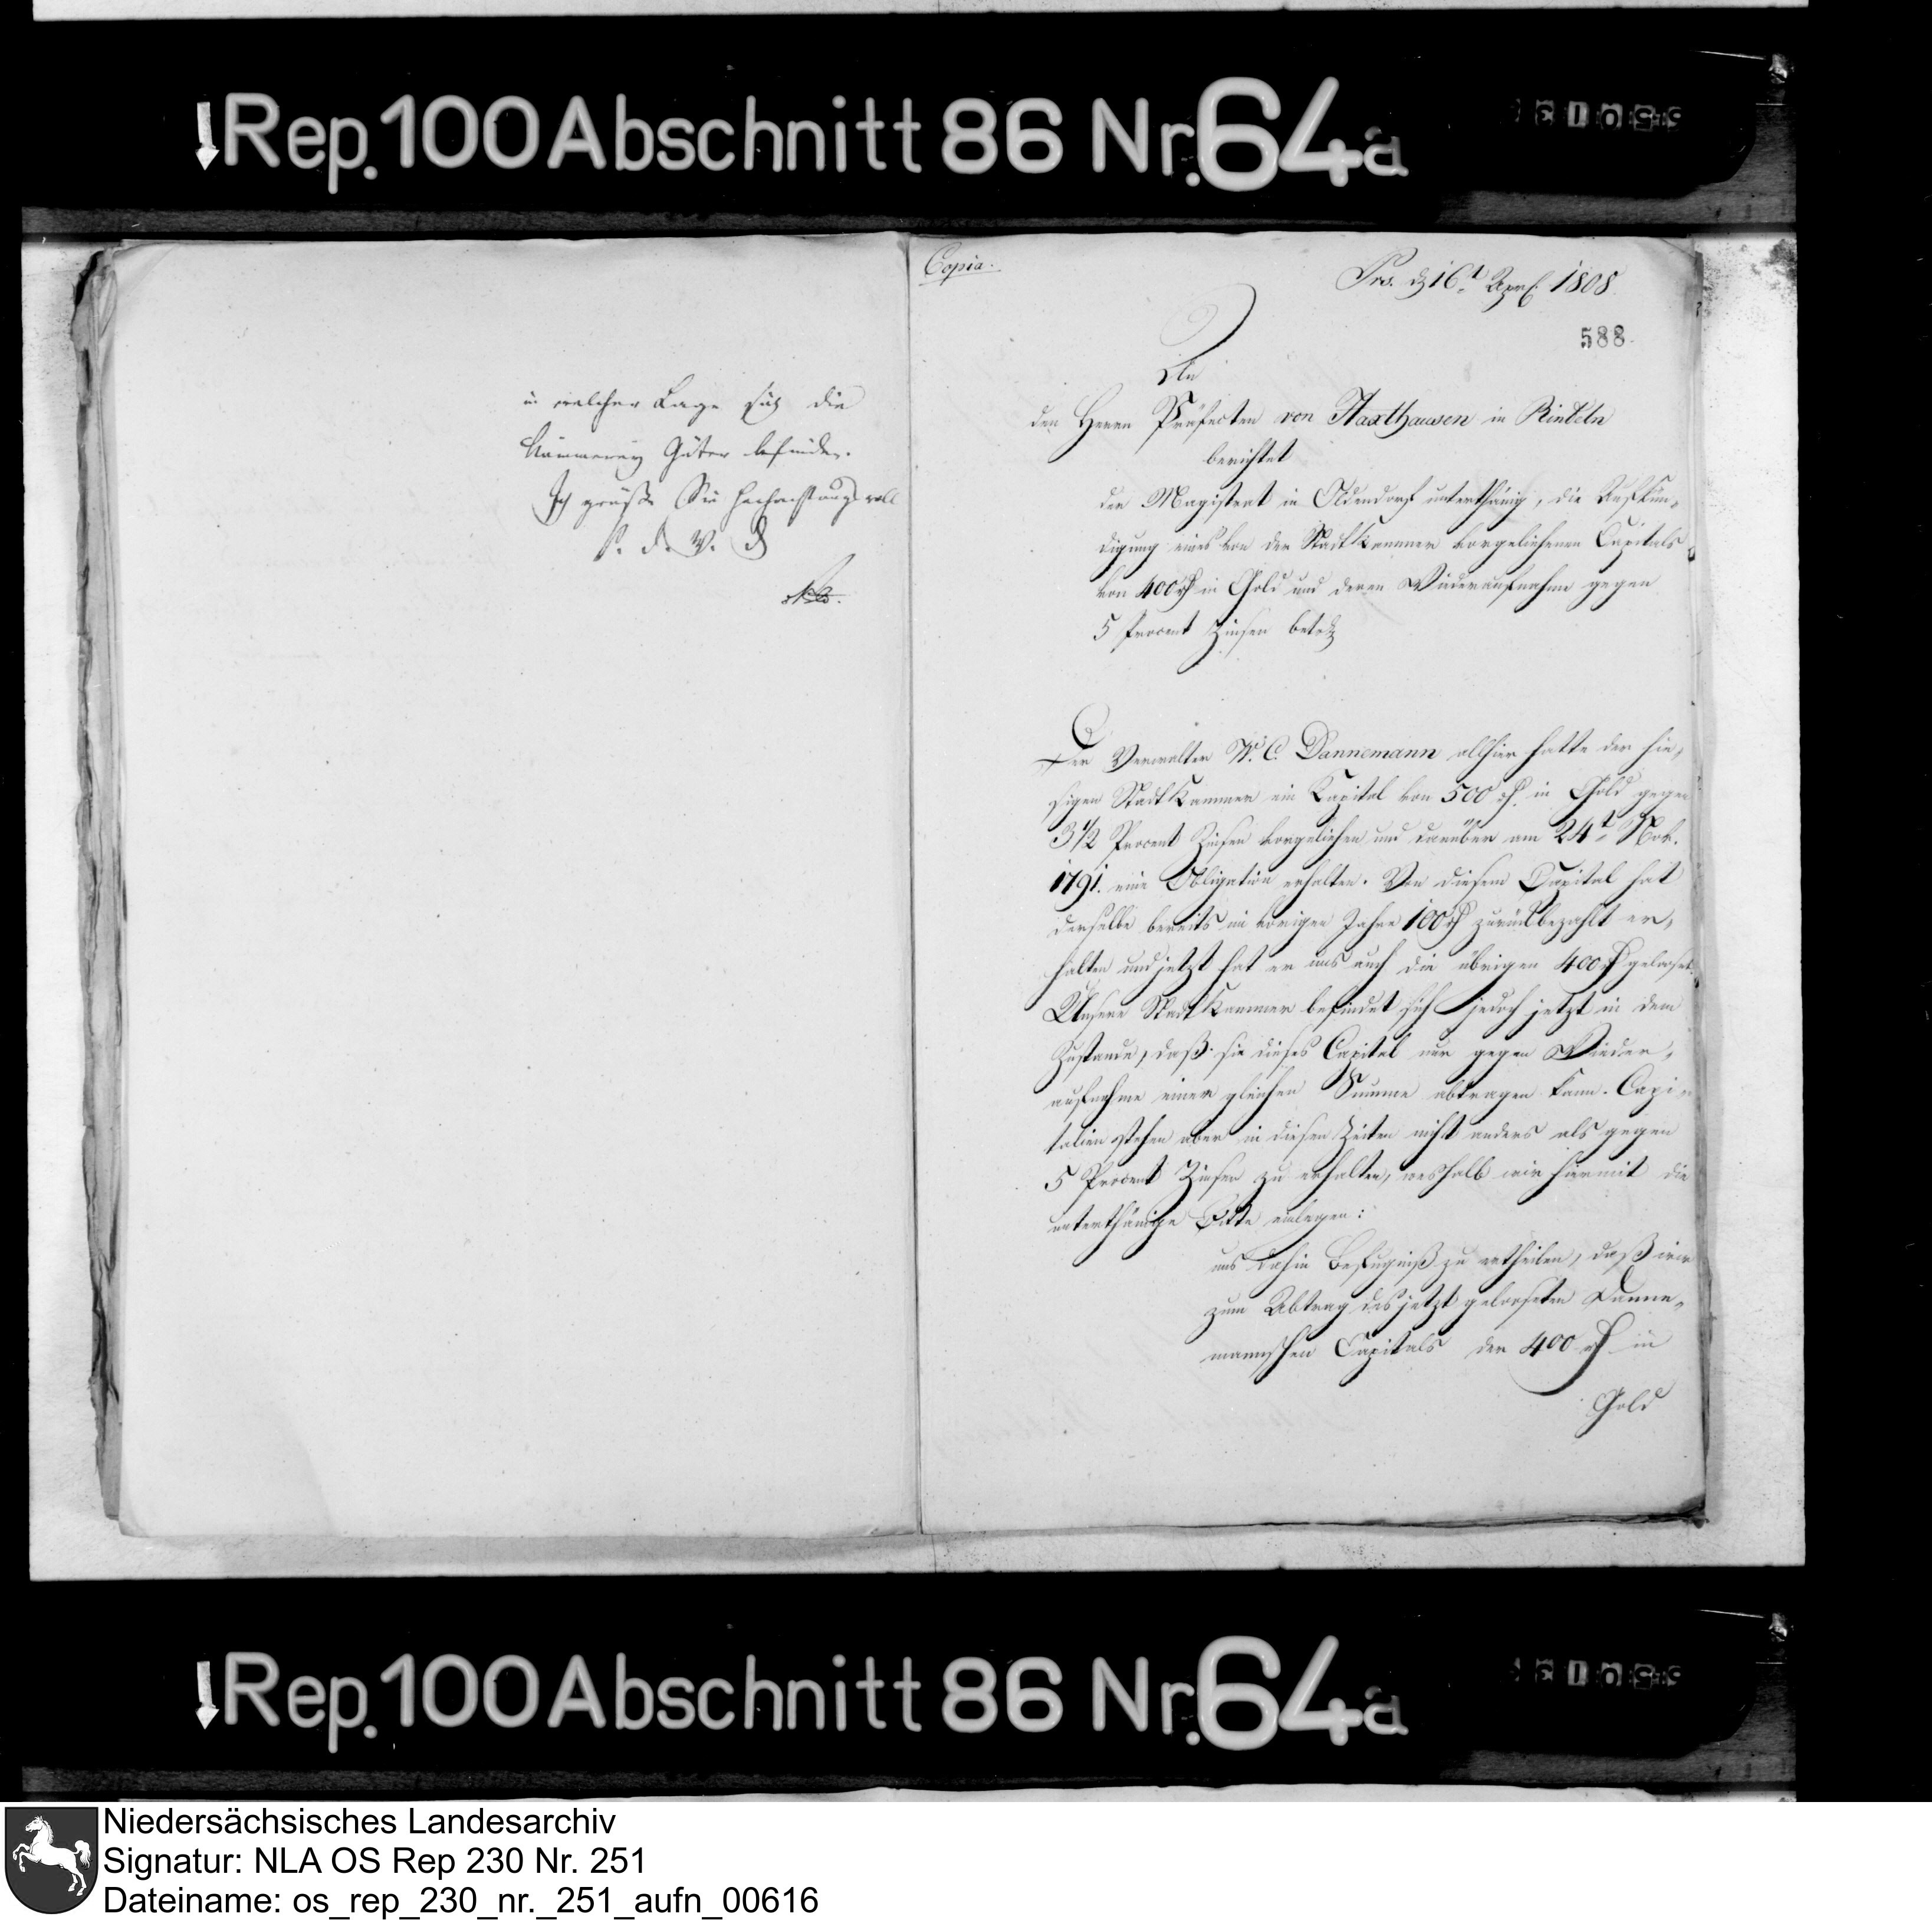 Rep. 100 Abschnitt 86 Nr. 64a
in welcher Lage sich die
Kämmerey Güter befinden.
Ich grüße Sie hochachtungsvoll
Copia.
Prs. d 16t Apr. 1808
588
An
den Herrn Präfecten von Haxthausen in Rinteln
berichtet
der Magistrat in Oldendorf unterthänig, die Aufkün-
digung eines von der Stadt Kammer vorgeliehenen Capitals
von 400 rh in Gold und deren Wiederaufnahme gegen
5 Procent Zinsen betr
Der Verwalter W. C. Dannemann allhier hatte der hie-
sigen Stadt Kammer ein Kapital von 500 rh. in Gold gegen
3 1/2 Procent Zinsen vorgeliehen und darüber am 24t Nov.
1791. eine Obligation erhalten. Von diesem Capital hat
derselbe bereits im vorigen Jahre 100 rh zurückbezahlt er-
halten und jetzt hat er uns auch die übrigen 400 rh geloset.
Unsere Stadt Kammer befindet sich jedoch jetzt in dem
Zustande, daß sie dieses Capital nur gegen Wieder-
aufnahme einer gleichen Summe abtragen kann. Capi-
talien stehen aber in diesen Zeiten nicht anders als gegen
5 Procent Zinsen zu erhalten, weshalb wir hiermit die
unterthänige Bitte einlegen:
uns dahin Befugniß zu ertheilen, daß wir
zum Abtrag des jetzt geloseten Danne-
mannschen Capitals der 400 rh in
Gold
Rep. 100 Abschnitt 86 Nr. 64a
Niedersächsisches Landesarchiv
Signatur: NLA OS Rep 230 Nr. 251
Dateiname: os_rep_230_nr._251_aufn_00616